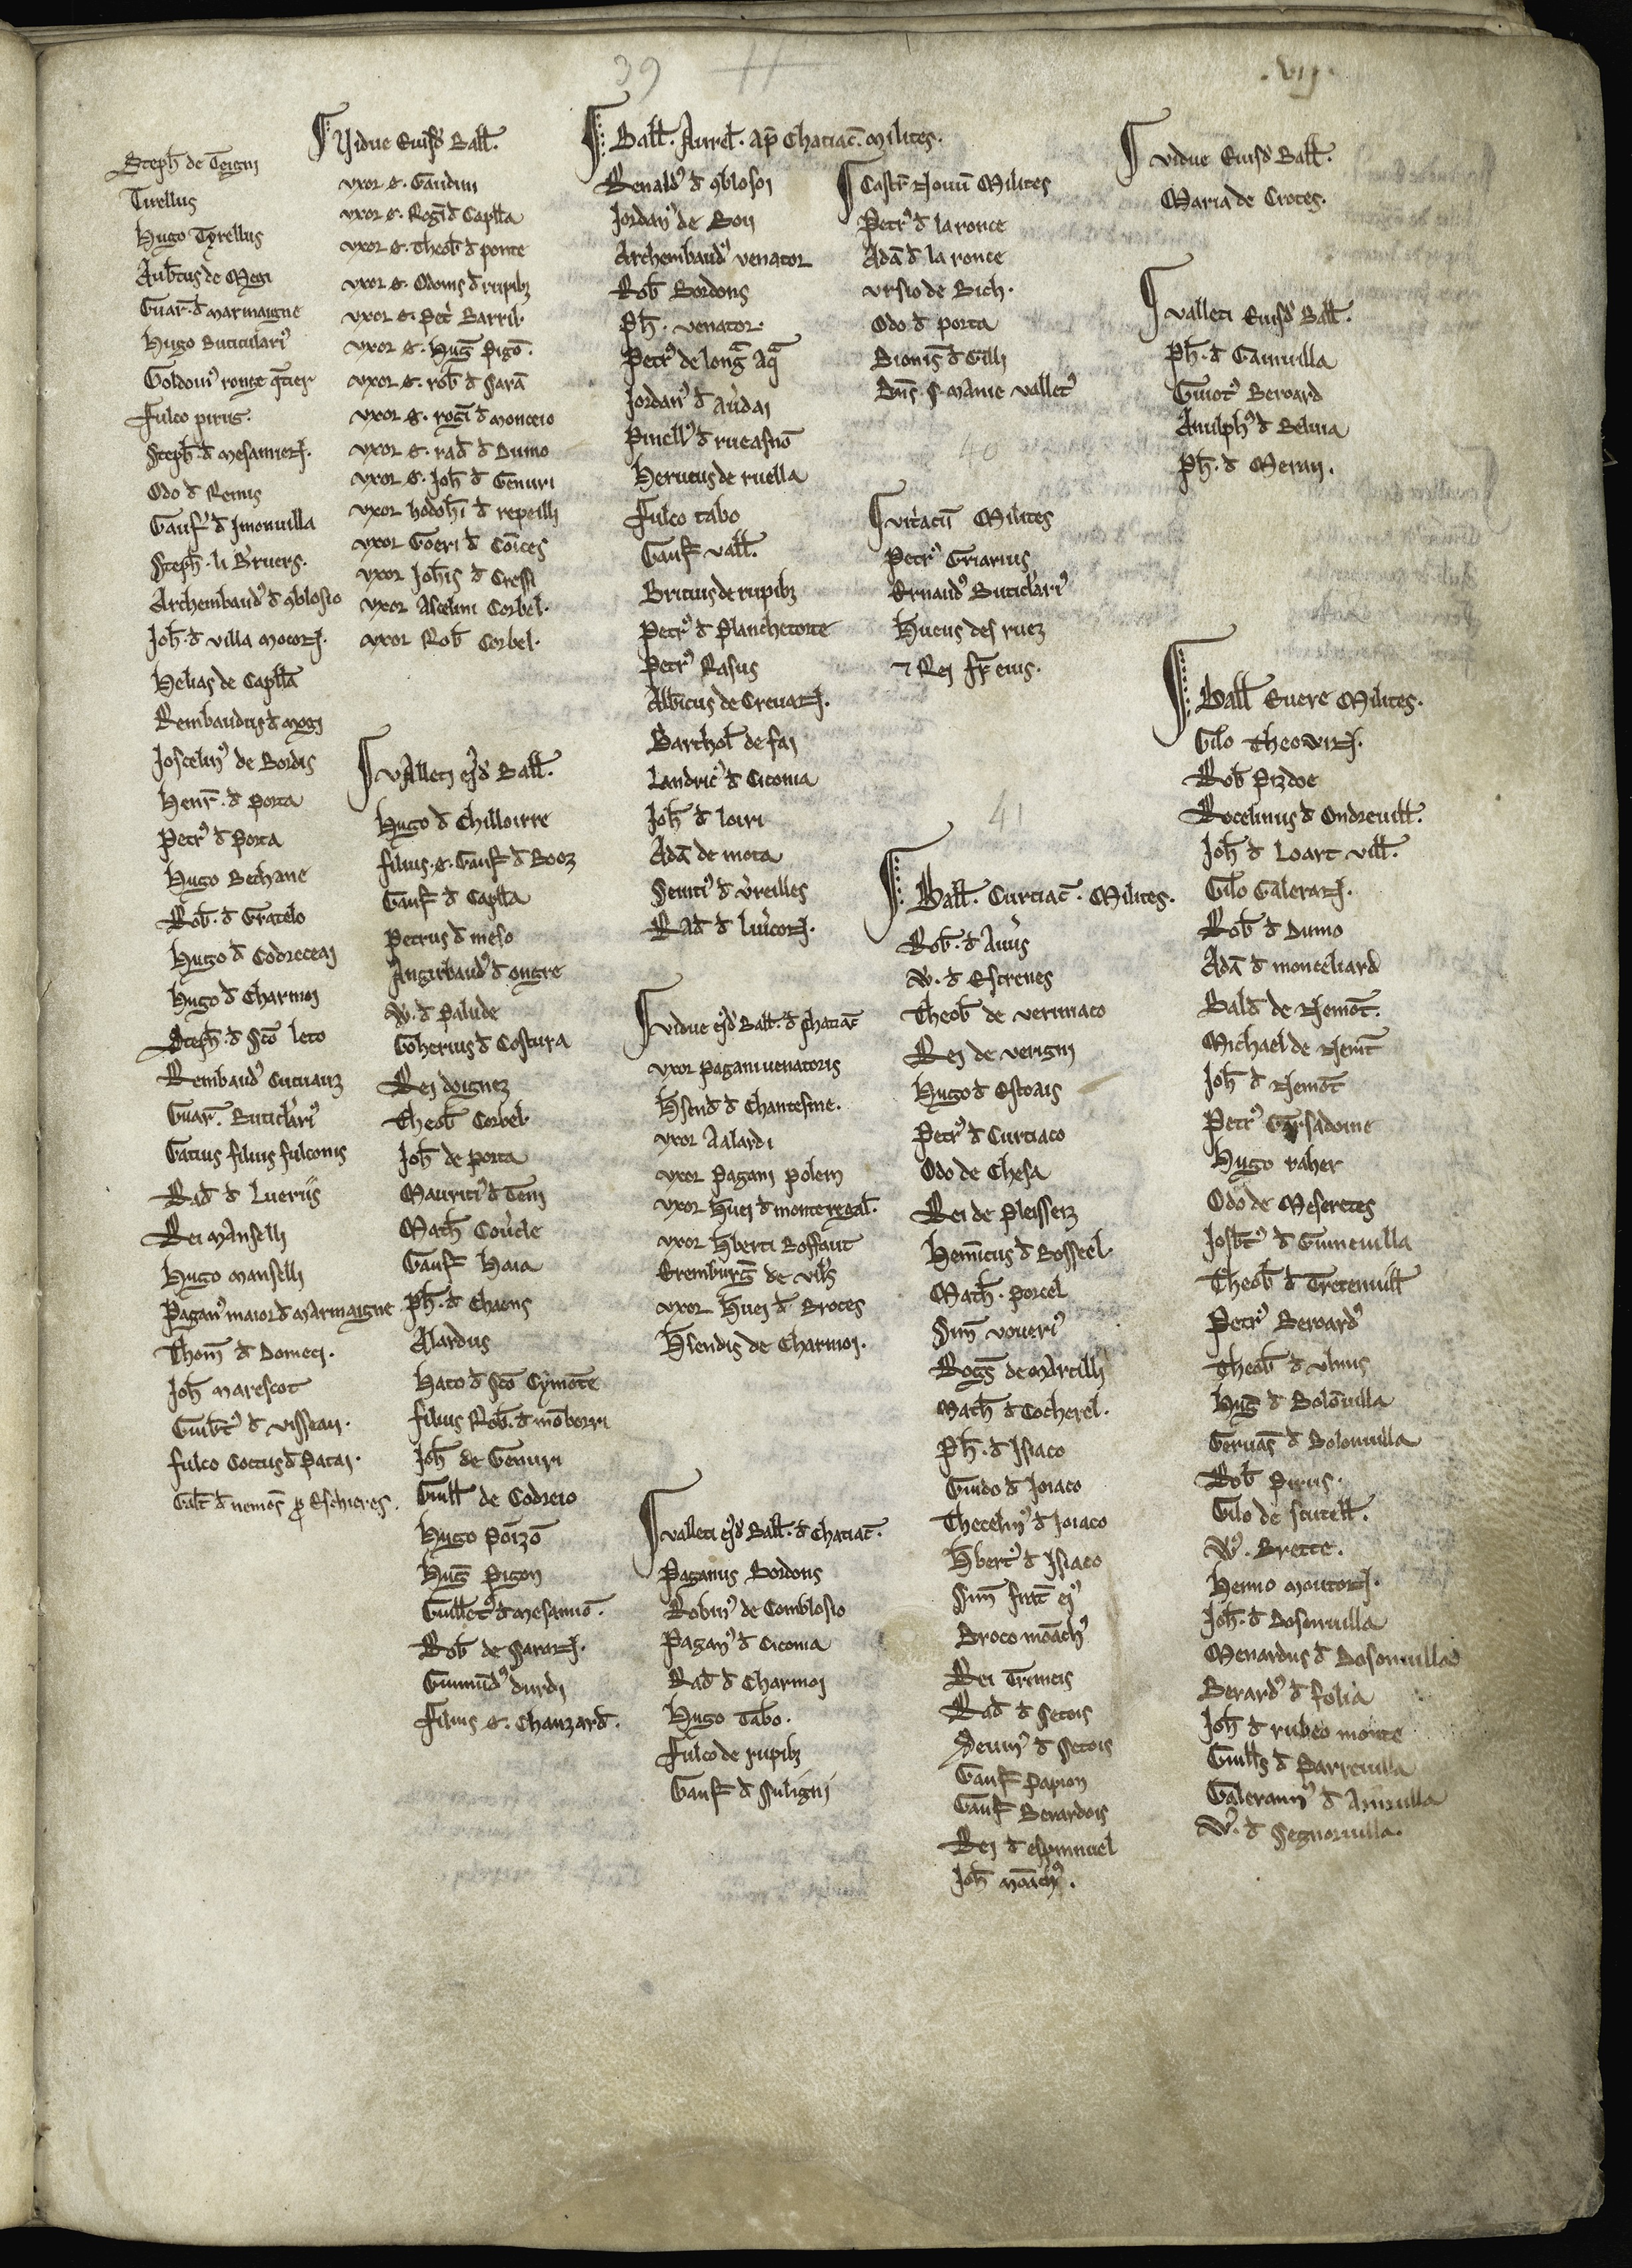 39
.vij.
Steph̄ de Teigni
Tirellus
Hugo Tyrellus
Aub̄tus de Megi
Guar̄. d̄ marmaigne
Hugo Buticulariꝰ
Goldoinꝰ ronge q̄tier
Fulco pirus.
Steph̄. d̄ mesanꝛ.
Odo d̄ Remis
Gauf̄ d̄ Imonuilla
Steph̄. li Bruers.
Archembaudꝰ d̄ ꝯblosio
Joh̄. d̄ villa moton̄.
Helias de Capll̄a
Rembaudus d̄ mogi
Joscelinꝰ de Bordis
Henr̄. d̄ Porta
Petrꝰ d̄ Porta
Hugo Bechane
Rob̄. d̄ Gratelo
Hugo d̄ Codreceai
Hugo d̄ Charmoi
Steph̄. d̄ Sc̄o leto
Rembaudꝰ Cucuauz
Guar̄. Buticl̄ariꝰ
Gatius filius fulconis
Rad̄ d̄ Lueriis
Rei manselli
Hugo manselli
Paganꝰ maior d̄ marmaigne
Thom̄ d̄ Domeci.
Joh̄ marescot
Guib̄tꝰ d̄ visseau.
fulco Coctus d̄ Patai.
Gilt̄ d̄ nemos̄ ꝓ Eschieres.
Vidue Eiusd̄ Ball̄.
vxor G. Gaudini
vxor G. Roḡi d̄ Capll̄a
vxor G. Theob̄ d̄ ponte
vxor G. Odonis d̄ rupibꝫ
vxor G. Pet̄ Barril.
vxor G. Huḡ Pigō.
vxor G. rob̄ d̄ Sarā
vxor G. roḡi d̄ monceio
vxor G. rad̄ d̄ Dumo
vxor G. Joh̄ d̄ Genuri
vxor hodoh̄i d̄ repeilli
vxor Goeri d̄ Cōices
vxor Joh̄is d̄ Cressi
vxor Ascelini Corbel.
vxor Rob̄ Corbel.
valleti ej̄d̄ Ball̄.
Hugo d̄ Chilloirre
filius. G. Gauf̄ d̄ Booz
Gauf̄ d̄ Capll̄a
Petrus d̄ meso
Angirbaudꝰ d̄ ongre
W. d̄ Palude
Goherius d̄ Costura
Rei doignez
Theob̄ Corbel.
Joh̄ de porta
Mauritiꝰ d̄ Teni
Math̄ Cou̓cle
Gauf̄ Haia
Ph̄. d̄ Chaons
Alardus
Hato d̄ Sc̄o Cymōte
filius Rob̄. d̄ mōberri
Joh̄ de Genuri
Guill̄ de Codreio
Hugo Poizō
Huḡ Pigon
Guill̄etꝰ d̄ mesanio̅.
Rob̄ de Saran̄.
Guimūdꝰ durdi
Filius G. Chauzard̄.
Ball̄. Aurel̄. ap̄ Chatiac̄. milites.
Renaldꝰ d̄ ꝯblosoi
Jordanꝰ de Boii
Archembaudꝰ venator
Rob̄ Bordons
Ph̄. venator.
Petrꝰ de longa Aq̄
Jordanꝰ d̄ au̓dai
Pinellꝰ d̄ rueasnō
Herueus de ruella
Fulco tabo
Gauf̄ vall̄.
Britius de rupibꝫ
Petrꝰ d̄ Planchetorte
Petrꝰ Rasus
Alb̄icus de Creuan̄.
Barthol̄ de fai
Landricꝰ d̄ Ciconia
Joh̄ d̄ loiri
Adā de mota
Seuitiꝰ d̄ v̓reilles
Rad̄ d̄ lu̓con̄.
vidue ej̄d̄ Ball̄. d̄ chatiac̄
vxor pagani uenatoris
H̄send̄ d̄ Chantesme.
vxor Aalardi
vxor Pagani polein
vxor Huei d̄ monteregal.
vxor H̄berti Boffaut
Eremburg̅ de vil̄s
vxor Huei d̄ Broces
H̄sendis de Charmoi.
valleti ej̄d̄ Ball̄. d̄ Chatiac̄.
Paganus Bordons
Robinꝰ de Comblosio
Paganꝰ d̄ Ciconia
Rad̄ d̄ Charmoi
Hugo Tabo.
Fulco de rupibꝫ
Gauf̄ d̄ Suligni
Castr̄ Nouū Milites
Petrꝰ d̄ la ronce
Adā d̄ la ronce
vrsio de Bich.
Odo d̄ porta
Dionis̄ d̄ Gilli
Dn̄s. s. manie valletꝰ
40
vit̓acū Milites
Petrꝰ Griarius
Ernaudꝰ Buticl̄ariꝰ
Hueus des ruez
⁊ Rei fr̄ eius.
41
Ball̄. Curtiac̄. Milites.
Rob̄. d̄ Auu̓s
W. d̄ Escrenes
Theob̄ de verrinaco
Rei de verigni
Hugo d̄ Estoais
Petrꝰ d̄ Curtiaco
Odo de Chesa
Rei de Pleisseiz
Hem̄icus d̄ Bosseel.
Math̄. porcel
Sim̄ voueriꝰ
Rog̅s de Martilli
Math̄ d̄ Cocherel.
Ph̄. d̄ Isiaco
Guido d̄ Joiaco
Thecelinꝰ d̄ Joiaco
H̄bertꝰ d̄ Isiaco
Sim̄ frat̄ ejꝰ
Droco mōachꝰ
Rei Tr̄meis
Rad̄ d̄ Secois
Seuinꝰ d̄ Secois
Gauf̄ Papion
Gauf̄ Berardois
Rei d̄ espinnuel
Joh̄ mōachꝰ.
vidue Eiusd̄ Ball̄.
Maria de Croces.
valleti Eiusd̄ Ball̄.
Ph̄. d̄ Gainuilla
Guiotꝰ Beroard
Anulphꝰ d̄ Beluia
Ph̄. d̄ Merun.
Ball̄ Euere Milites.
Gilo Theowin̄.
Rob̄ Pizdoe
Rocelinus d̄ Ondreuill̄.
Joh̄ d̄ Loart vill̄.
Gilo Galeran̄.
Rob̄ d̄ Dumo
Adā d̄ monteliard
Bald̄ de Nemōt.
Michael de Nem̄t
Joh̄ d̄ Nemōt
Petrꝰ Garsadoine
Hugo raher
Odo de Meseretes
Josb̄tꝰ d̄ Guineuilla
Theob̄ d̄ Treteinuill̄
Petrꝰ Beroardꝰ
Theob̄ d̄ vlmis
Hug̅ d̄ Bolōuilla
Geruas̄ d̄ Bolonuilla
Rob̄ Pirus.
Gilo de scutell̄.
Wꝰ. Brette.
Hemo mouton̄.
Joh̄. d̄ Bosonuilla
Menardus d̄ Bosonuilla
Berardꝰ d̄ folia
Joh̄ d̄ rubeo monte
Guill̄s d̄ Parreuilla
Galerannꝰ d̄ Aniruilla
Wꝰ. d̄ Segnoruilla.